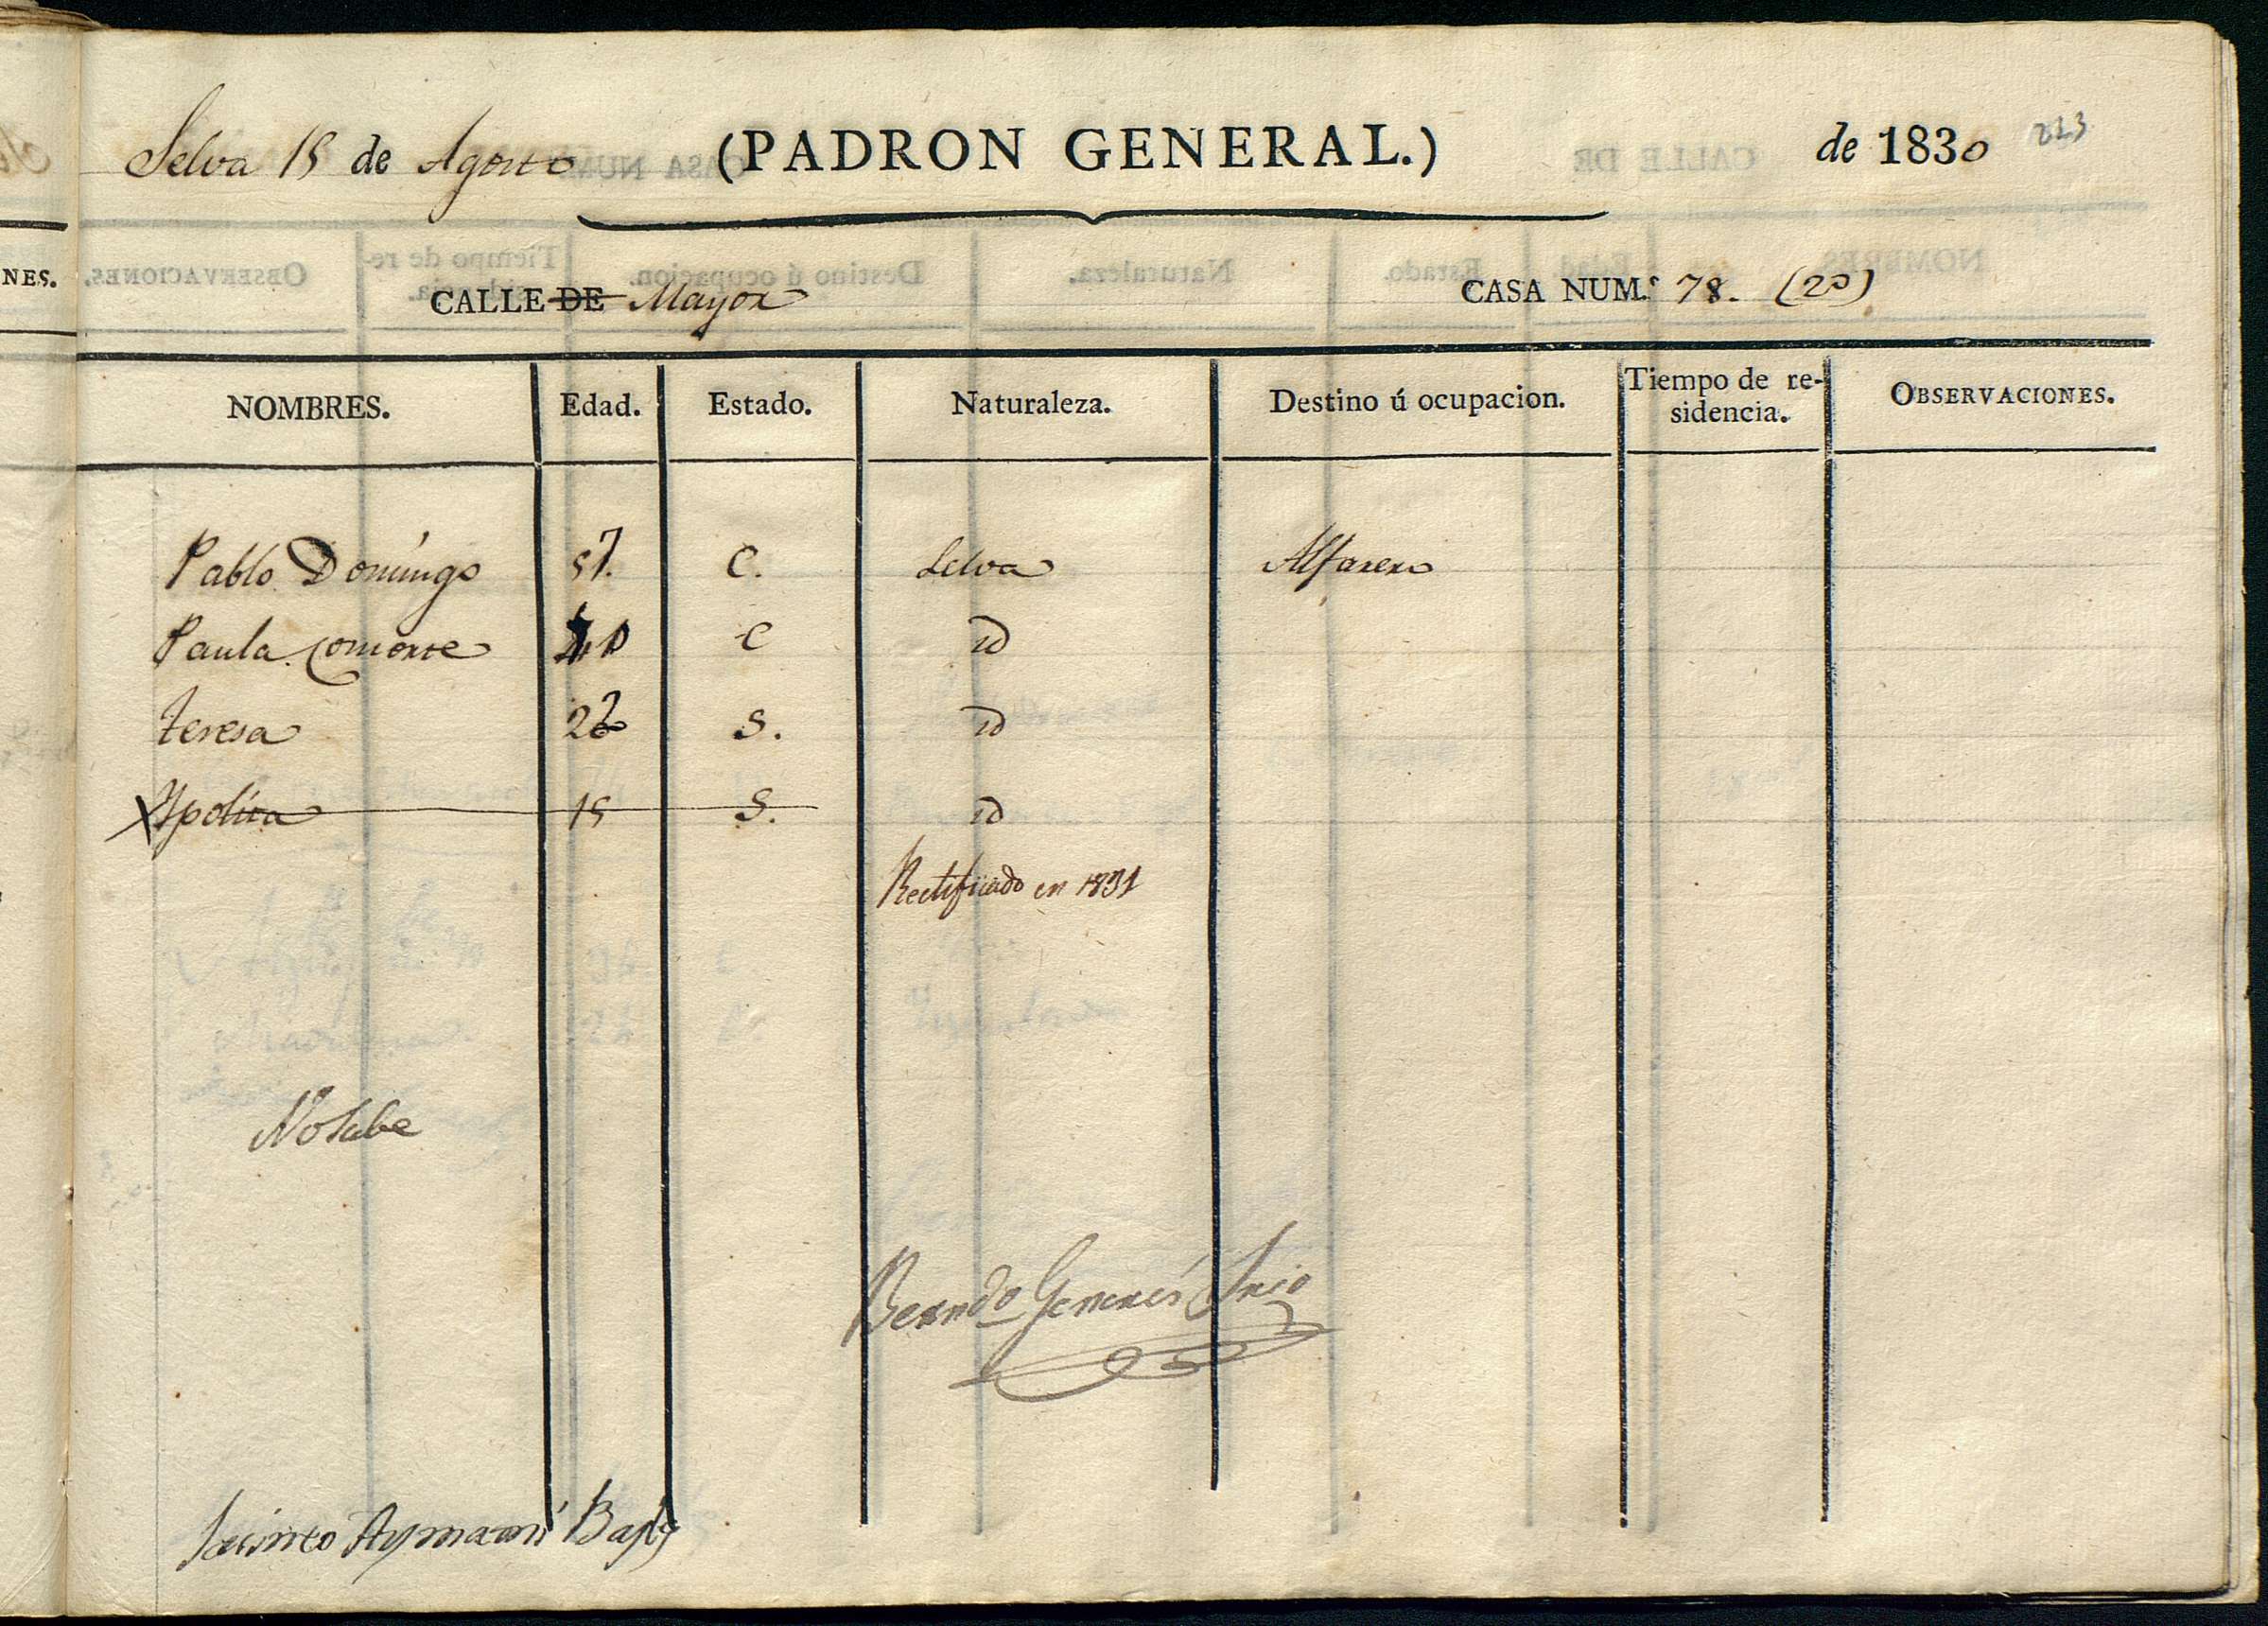 Selva 15 de Agosto (PADRON GENERAL.) de 1830 223
NES.
CALLE DE Mayor CASA NUM.º 78. (20)
NOMBRES. Edad. Estado. Naturaleza. Destino ú ocupacion. Tiempo de re-
sidencia. OBSERVACIONES.
Pablo Domingo 57. C. Selva Alfarero
Paula consorte C id
Teresa S. id
Ypolita 15 S. id
Rectificado en 1831
No sabe
Berndo Generés Srio
Jacinto Aymamí Bayle